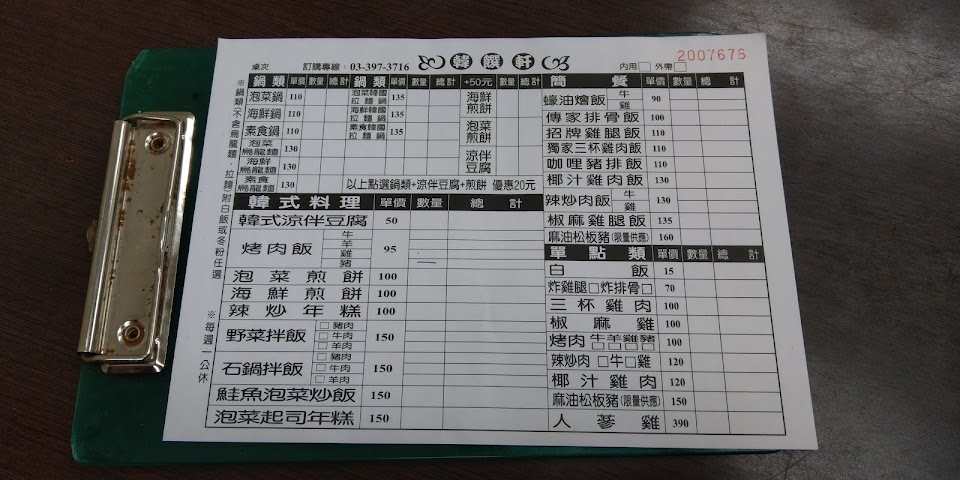 桌次 訂購專線：03-397-3716 韓饌軒 內用□ 外帶□
2007676
※鍋類(不含烏龍麵、拉麵)附白飯或冬粉任選
※每週一公休
鍋類 單價 數量 總計 鍋類 單價 數量 總計 +50元
泡菜鍋 110 泡菜韓國拉麵鍋 135 海鮮煎餅
海鮮鍋 110 海鮮韓國拉麵鍋 135
素食鍋 110 素食韓國拉麵鍋 135 泡菜煎餅
泡菜烏龍麵 130
海鮮烏龍麵 130 涼伴豆腐
素食烏龍麵 130 以上點選鍋類+涼伴豆腐+煎餅 優惠20元
韓式料理 單價 數量 總計
韓式涼伴豆腐 50
烤肉飯 牛 羊 雞 豬 95
泡菜煎餅 100
海鮮煎餅 100
辣炒年糕 100
野菜拌飯 □豬肉 □牛肉 □羊肉 150
石鍋拌飯 □豬肉 □牛肉 □羊肉 150
鮭魚泡菜炒飯 150
泡菜起司年糕 150
簡餐 單價 數量 總計
蠔油燴飯 牛 雞 90
傳家排骨飯 100
招牌雞腿飯 110
獨家三杯雞肉飯 110
咖哩豬排飯 110
椰汁雞肉飯 130
辣炒肉飯 牛 雞 130
椒麻雞腿飯 135
麻油松板豬(限量供應) 160
單點類 單價 數量 總計
白飯 15
炸雞腿□炸排骨□ 70
三杯雞肉 100
椒麻雞 100
烤肉 牛羊雞豬 100
辣炒肉 □牛□雞 120
椰汁雞肉 120
麻油松板豬(限量供應) 150
人蔘雞 390